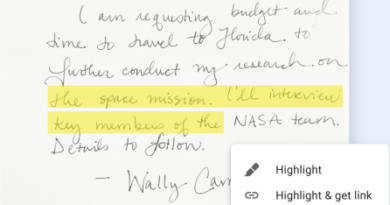 I am requesting budget and
time to travel to Florida to
further conduct my research on
the space mission. I'll interview
key members of the NASA team.
Details to follow.
– Wally
Highlight
Highlight & get link